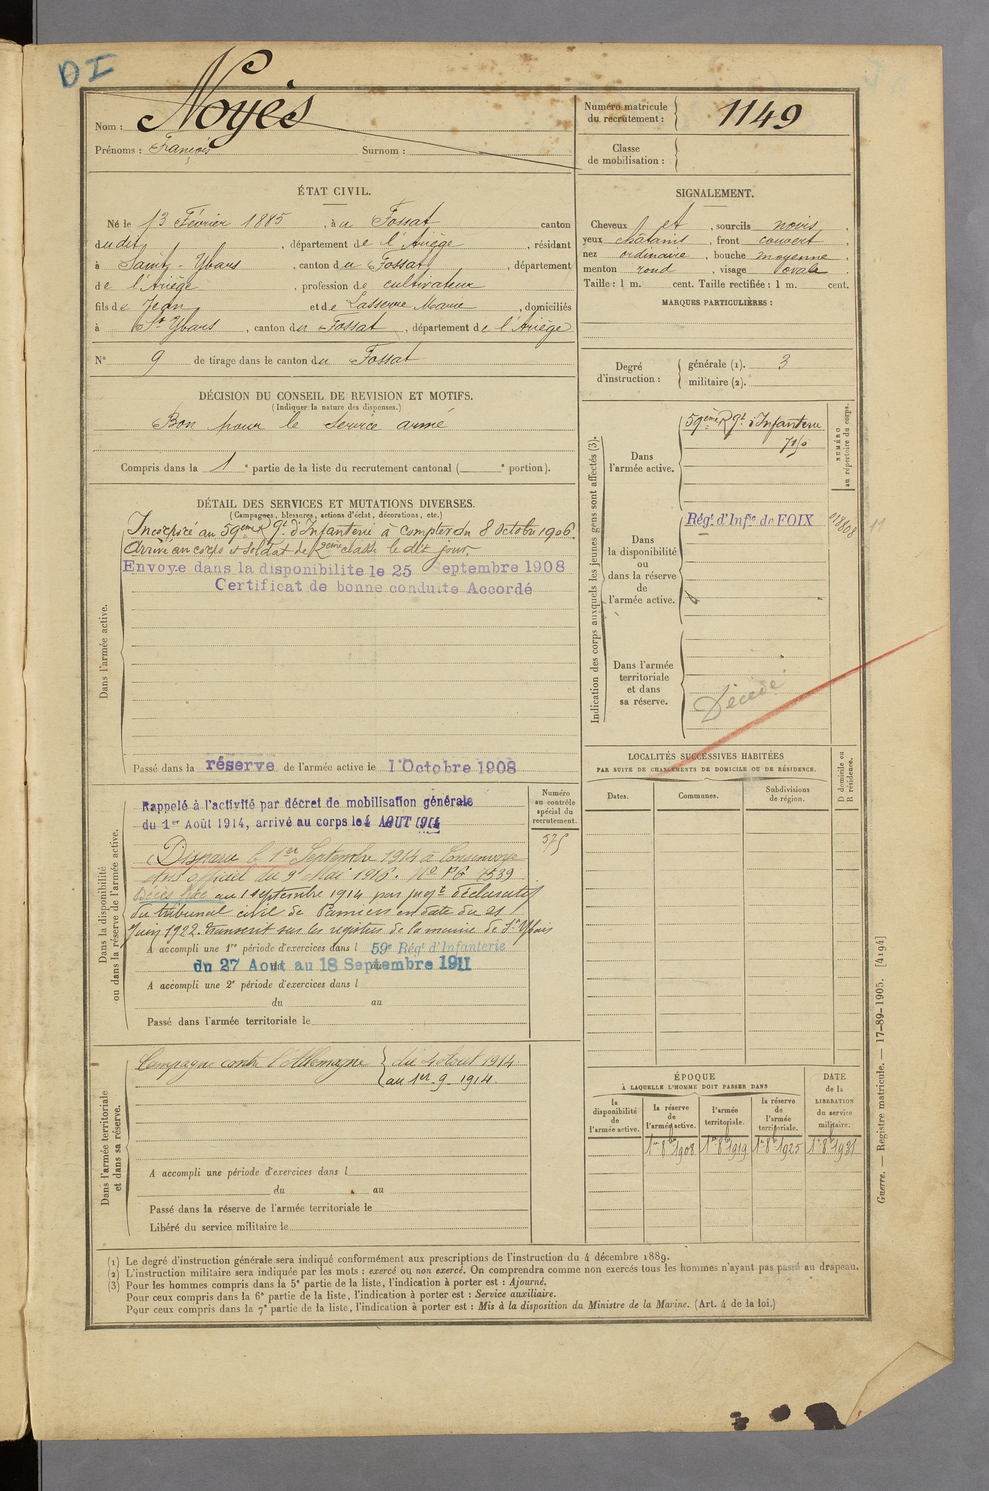 DI
Nom : Noyès
Prénoms : François Surnom :
Numéro matricule du recrutement : 1149
Classe de mobilisation :
ÉTAT CIVIL.
Né le 13 Février 1885, à u Fossat canton
dudit, département de l'Ariège, résidant
à Saint-Ybars, canton du Fossat, département
de l'Ariège, profession de cultivateur
fils de Jean et de Lasserre Marie, domiciliés
à St Ybars, canton du Fossat, département de l'Ariège
N° 9 de tirage dans le canton du Fossat
SIGNALEMENT.
Cheveux et, sourcils noirs,
yeux châtains, front couvert,
nez ordinaire, bouche moyenne,
menton rond, visage ovale.
Taille : 1 m. cent. Taille rectifiée : 1 m. cent.
MARQUES PARTICULIÈRES :
Degré d'instruction : générale (1). 3
militaire (2).
DÉCISION DU CONSEIL DE REVISION ET MOTIFS.
(Indiquer la nature des dispenses.)
Bon pour le service armé
Compris dans la 1e partie de la liste du recrutement cantonal ( e portion).
DÉTAIL DES SERVICES ET MUTATIONS DIVERSES.
(Campagnes, blessures, actions d'éclat, décorations, etc.)
Dans l'armée active.
Incorporé au 59eme Rgt d'Infanterie à compter du 8 octobre 1906.
Arrivé au corps et soldat de 2eme classe le dit jour.
Envoyé dans la disponibilité le 25 Septembre 1908
Certificat de bonne conduite Accordé
Passé dans la réserve de l'armée active le 1er Octobre 1908
Indication des corps auxquels les jeunes gens sont affectés (3).
NUMÉRO au répertoire du corps.
Dans l'armée active.
59eme Rgt d'Infanterie
Dans la disponibilité ou dans la réserve de l'armée active.
Régt d'Infie de FOIX
Dans l'armée territoriale et dans sa réserve.
Décédé
LOCALITÉS SUCCESSIVES HABITÉES
PAR SUITE DE CHANGEMENTS DE DOMICILE OU DE RÉSIDENCE.
Dates. Communes. Subdivisions de région. D domicile ou R résidence.
Dans la disponibilité ou dans la réserve de l'armée active.
Numéro au contrôle spécial du recrutement.
575
Rappelé à l'activité par décret de mobilisation générale
du 1er Août 1914, arrivé au corps le 4 AOUT 1914
Disparu le 1er Septembre 1914 à Consenvoye
Avis officiel du 9 Mai 1916. No PG 1539
Décès fixé au 1 septembre 1914 par jugt déclaratif
du tribunal civil de Pamiers en date du 21
Juin 1922. transcrit sur les registres de la mairie de St Ybars
A accompli une 1re période d'exercices dans l 59e Régt d'Infanterie
du 27 Août au 18 Septembre 1911
A accompli une 2e période d'exercices dans l
du au
Passé dans l'armée territoriale le
Dans l'armée territoriale et dans sa réserve.
Campagne contre l'Allemagne du 4 Aout 1914
au 1er. 9. 1914.
A accompli une période d'exercices dans l
du au
Passé dans la réserve de l'armée territoriale le
Libéré du service militaire le
ÉPOQUE
À LAQUELLE L'HOMME DOIT PASSER DANS
DATE de la LIBÉRATION du service militaire.
la disponibilité de l'armée active. la réserve de l'armée active. l'armée territoriale. la réserve de l'armée territoriale.
1er 8bre 1908 1er 8bre 1919 1er 8bre 1925 1er 8bre 1931
(1) Le degré d'instruction générale sera indiqué conformément aux prescriptions de l'instruction du 4 décembre 1889.
(2) L'instruction militaire sera indiquée par les mots : exercé ou non exercé. On comprendra comme non exercés tous les hommes n'ayant pas passé au drapeau.
(3) Pour les hommes compris dans la 5e partie de la liste, l'indication à porter est : Ajourné.
Pour ceux compris dans la 6e partie de la liste, l'indication à porter est : Service auxiliaire.
Pour ceux compris dans la 7e partie de la liste, l'indication à porter est : Mis à la disposition du Ministre de la Marine. (Art. 4 de la loi.)
Guerre. — Registre matricule. — 17-89-1905. [4194]